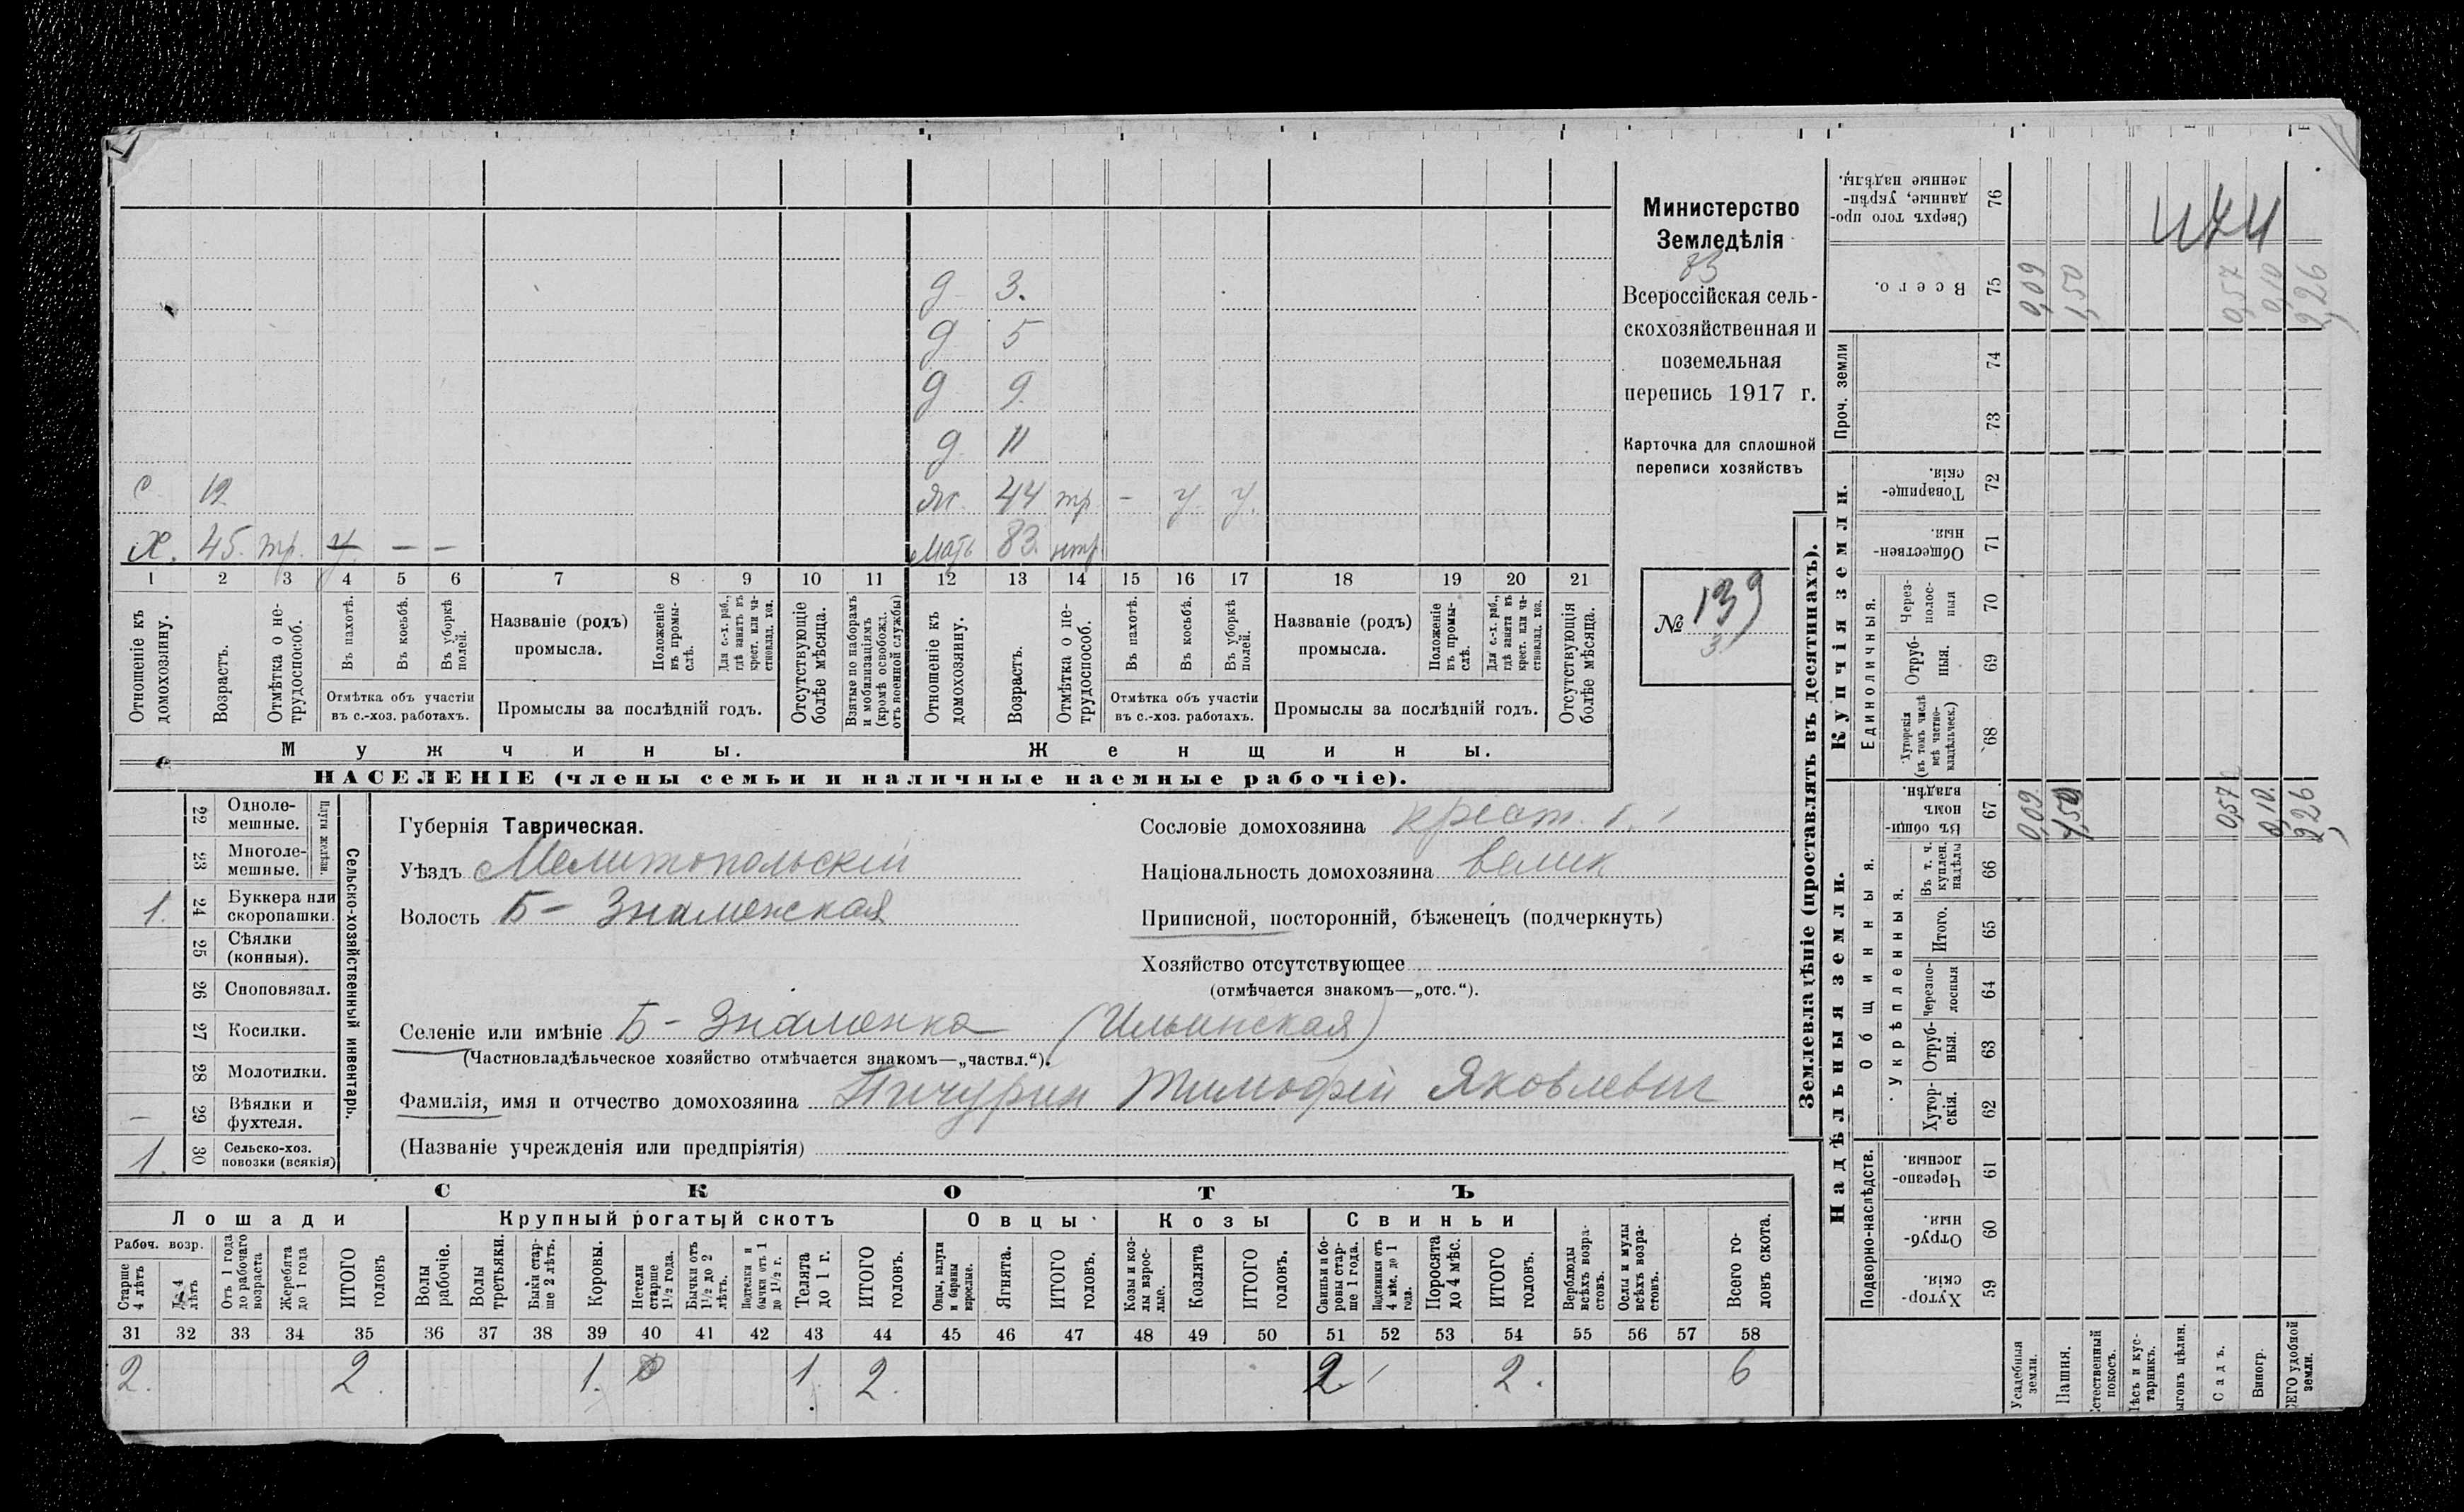 д 3.
д 5
д 9.
д 11
с 12 ж. 44 тр. - у. у.
Х. 45. тр. у. — — Мать 83. нтр
1 2 3 4 5 6 7 8 9 10 11 12 13 14 15 16 17 18 19 20 21
Отношеніе къ домохозяину.
Возрастъ.
Отмѣтка о нетрудоспособ.
Въ пахотѣ.
Въ косьбѣ.
Въ уборкѣ полей.
Отмѣтка объ участіи въ с.-хоз. работахъ.
Названіе (родъ) промысла.
Положеніе въ промыслѣ.
Для с.-х. раб., гдѣ занятъ въ крест. или частновлад. хоз.
Промыслы за послѣдній годъ.
Отсутствующіе болѣе мѣсяца.
Взятые по наборамъ и мобилизаціямъ (кромѣ освобожд. отъ военной службы)
Отношеніе къ домохозяину.
Возрастъ.
Отмѣтка о нетрудоспособ.
Въ пахотѣ.
Въ косьбѣ.
Въ уборкѣ полей.
Отмѣтка объ участіи въ с.-хоз. работахъ.
Названіе (родъ) промысла.
Положеніе въ промыслѣ.
Для с.-х. раб., гдѣ занята въ крест. или частновлад. хоз.
Промыслы за послѣдній годъ.
Отсутствующія болѣе мѣсяца.
Мужчины. Женщины.
НАСЕЛЕНІЕ (члены семьи и наличные наемные рабочіе).
Министерство
Земледѣлія
83
Всероссійская сель-
скохозяйственная и
поземельная
перепись 1917 г.
Карточка для сплошной
переписи хозяйствъ
№ 139
3.
Сельско-хозяйственный инвентарь.
Плуги желѣзн.
22 Одноле-мешные.
23 Многоле-мешные.
1. 24 Буккера или скоропашки.
25 Сѣялки (конныя).
26 Сноповязал.
27 Косилки.
28 Молотилки.
— 29 Вѣялки и фухтеля.
1. 30 Сельско-хоз. повозки (всякія)
Губернія Таврическая.
Уѣздъ Мелитопольскій
Волость Б - Знаменская
Сословіе домохозяина крест.
Національность домохозяина велик
Приписной, посторонній, бѣженецъ (подчеркнуть)
Хозяйство отсутствующее
(отмѣчается знакомъ—„отс.“).
Селеніе или имѣніе Б - Знаменка (Ильинская)
(Частновладѣльческое хозяйство отмѣчается знакомъ—„частвл.“).
Фамилія, имя и отчество домохозяина Пичурин Тимофей Яковлевич
(Названіе учрежденія или предпріятія)
СКОТЪ
Лошади Крупный рогатый скотъ Овцы Козы Свиньи
Рабоч. возр.
Старше 4 лѣтъ
До 4 лѣтъ
Отъ 1 года до рабочаго возраста
Жеребята до 1 года
ИТОГО головъ
Волы рабочіе.
Волы третьяки.
Быки старше 2 лѣтъ.
Коровы.
Нетели старше 1 1/2 года.
Бычки отъ 1 1/2 до 2 лѣтъ.
Подтелки и бычки отъ 1 до 1 1/2 г.
Телята до 1 г.
ИТОГО головъ.
Овцы, валухи и бараны взрослые.
Ягнята.
ИТОГО головъ.
Козы и козлы взрослые.
Козлята
ИТОГО головъ.
Свиньи и боровы старше 1 года.
Подсвинки отъ 4 мѣс. до 1 года.
Поросята до 4 мѣс.
ИТОГО головъ.
Верблюды всѣхъ возрастовъ.
Ослы и мулы всѣхъ возрастовъ.
Всего головъ скота.
31 32 33 34 35 36 37 38 39 40 41 42 43 44 45 46 47 48 49 50 51 52 53 54 55 56 57 58
2. 2. 1. 1 2. 2 2. 6
Землевладѣніе (проставлять въ десятинахъ).
Надѣльныя земли.
Купчія земли.
Проч. земли
Подворно-наслѣдств.
Общинныя.
Укрѣпленныя.
Единоличныя.
Сверхъ того проданные, укрѣпленные надѣлы. 76
Всего. 75 0,09 1,50 0,57 0,10 2,26
74
73
Товарищескія. 72
Общественныя. 71
Черезполосныя 70
Отрубныя. 69
Хуторскія (въ томъ числѣ всѣ частновладѣльческ.) 68
Въ общиномъ владѣн. 67 0,09. 1,50 0,57 0,10. 2,26
Въ т. ч. куплен. надѣлы 66
Итого. 65
Черезполосныя 64
Отрубныя. 63
Хуторскія. 62
Черезполосныя. 61
Отрубныя. 60
Хуторскія. 59
Усадебныя земли.
Пашня.
Естественный покосъ.
Лѣсъ и кустарникъ.
Выгонъ цѣлин.
Садъ.
Виногр.
ВСЕГО удобной земли.